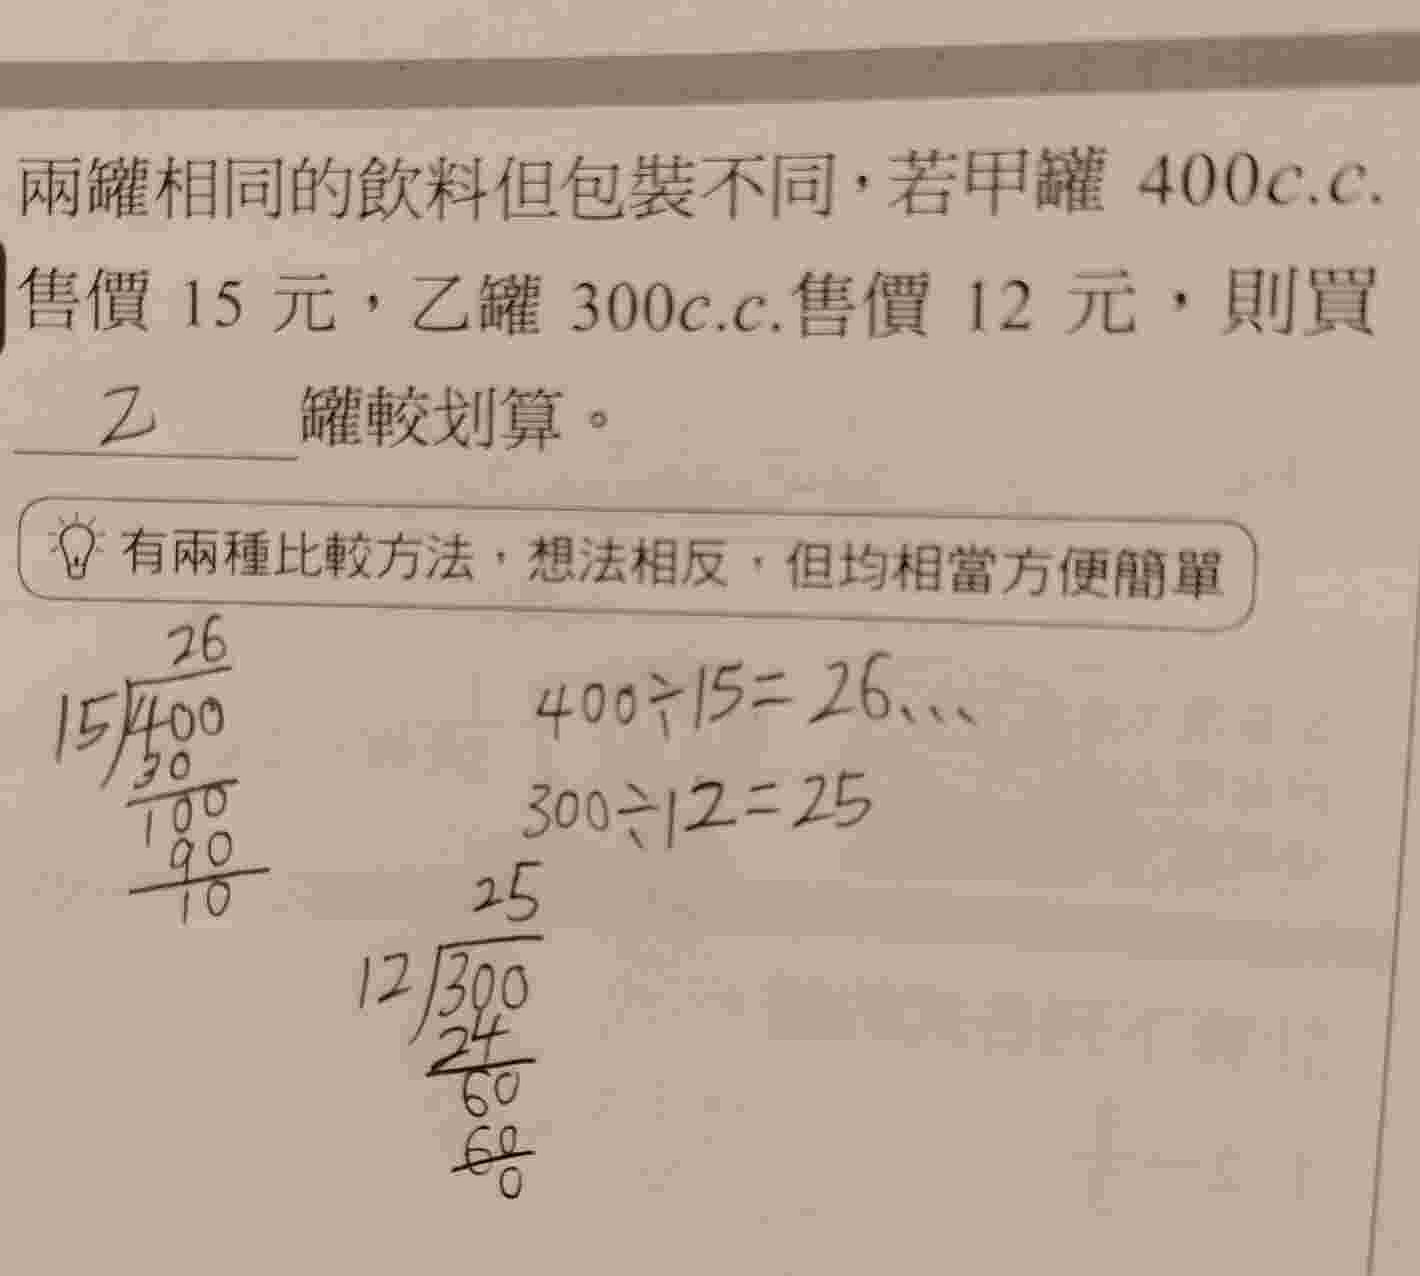 兩罐相同的飲料但包裝不同，若甲罐 400c.c.
售價 15 元，乙罐 300c.c.售價 12 元，則買
乙 罐較划算。
有兩種比較方法，想法相反，但均相當方便簡單
26
15 400
30
100
90
10
400÷15=26...
300÷12=25
25
12 300
24
60
60
0